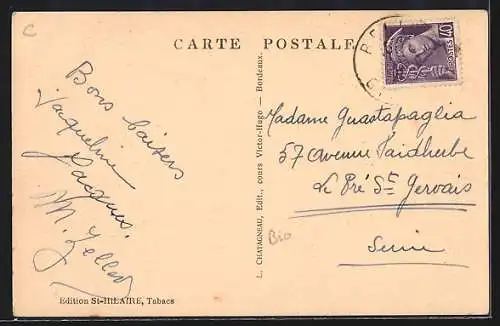 C
CARTE POSTALE
Bons baisers
Jacqueline
Jacques.
M. Zeller
Madame Guastapaglia
57 Avenue Faidherbe
Le Pré St Gervais
Seine
Bio
L. CHATAGNEAU, Edit., cours Victor-Hugo — Bordeaux.
Edition St-HILAIRE, Tabacs
40
POSTES